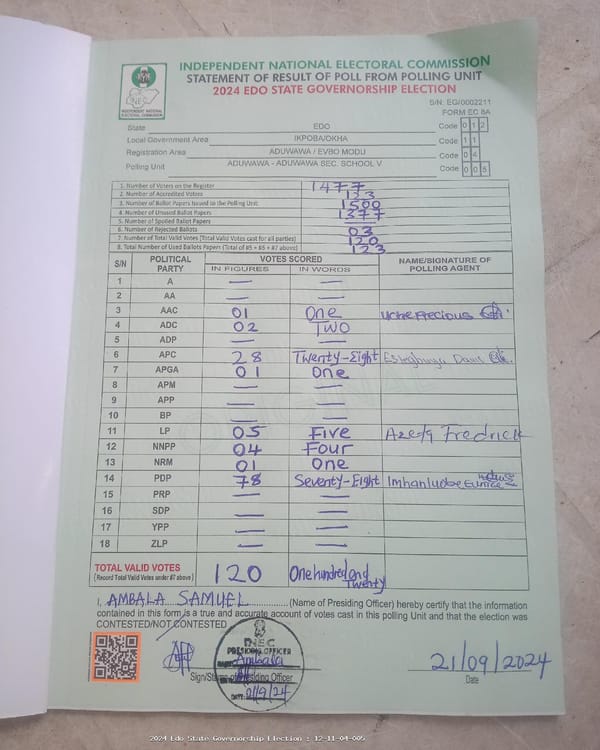 INDEPENDENT NATIONAL ELECTORAL COMMISSION
STATEMENT OF RESULT OF POLL FROM POLLING UNIT
2024 EDO STATE GOVERNORSHIP ELECTION
INEC
INDEPENDENT NATIONAL ELECTORAL COMMISSION
S/N: EG/0002211
FORM EC 8A
State EDO Code 0 1 2
Local Government Area IKPOBA/OKHA Code 1 1
Registration Area ADUWAWA / EVBO MODU Code 0 4
Polling Unit ADUWAWA - ADUWAWA SEC. SCHOOL V Code 0 0 5
1. Number of Voters on the Register 1477
2. Number of Accredited Voters 123
3. Number of Ballot Papers Issued to the Polling Unit 1500
4. Number of Unused Ballot Papers 1377
5. Number of Spoiled Ballot Papers
6. Number of Rejected Ballots 03
7. Number of Total Valid Votes (Total Valid Votes cast for all parties) 120
8. Total Number of Used Ballots Papers (Total of #5 + #6 + #7 above) 123
S/N POLITICAL PARTY VOTES SCORED NAME/SIGNATURE OF POLLING AGENT
IN FIGURES IN WORDS
1 A — —
2 AA — —
3 AAC 01 One Uche Precious
4 ADC 02 Two
5 ADP — —
6 APC 28 Twenty-Eight
7 APGA 01 One
8 APM — —
9 APP — —
10 BP — —
11 LP 05 Five Fredrick
12 NNPP 04 Four
13 NRM 01 One
14 PDP 78 Seventy-Eight
15 PRP — —
16 SDP — —
17 YPP — —
18 ZLP — —
TOTAL VALID VOTES 120 One hundred and Twenty
(Record Total Valid Votes under #7 above)
I, AMBALA SAMUEL (Name of Presiding Officer) hereby certify that the information
contained in this form is a true and accurate account of votes cast in this polling Unit and that the election was
CONTESTED/NOT CONTESTED
INEC
PRESIDING OFFICER
Ambala
DATE: 21/9/24
Sign/Stamp of Presiding Officer
21/09/2024
Date
2024 Edo State Governorship Election : 12-11-04-005